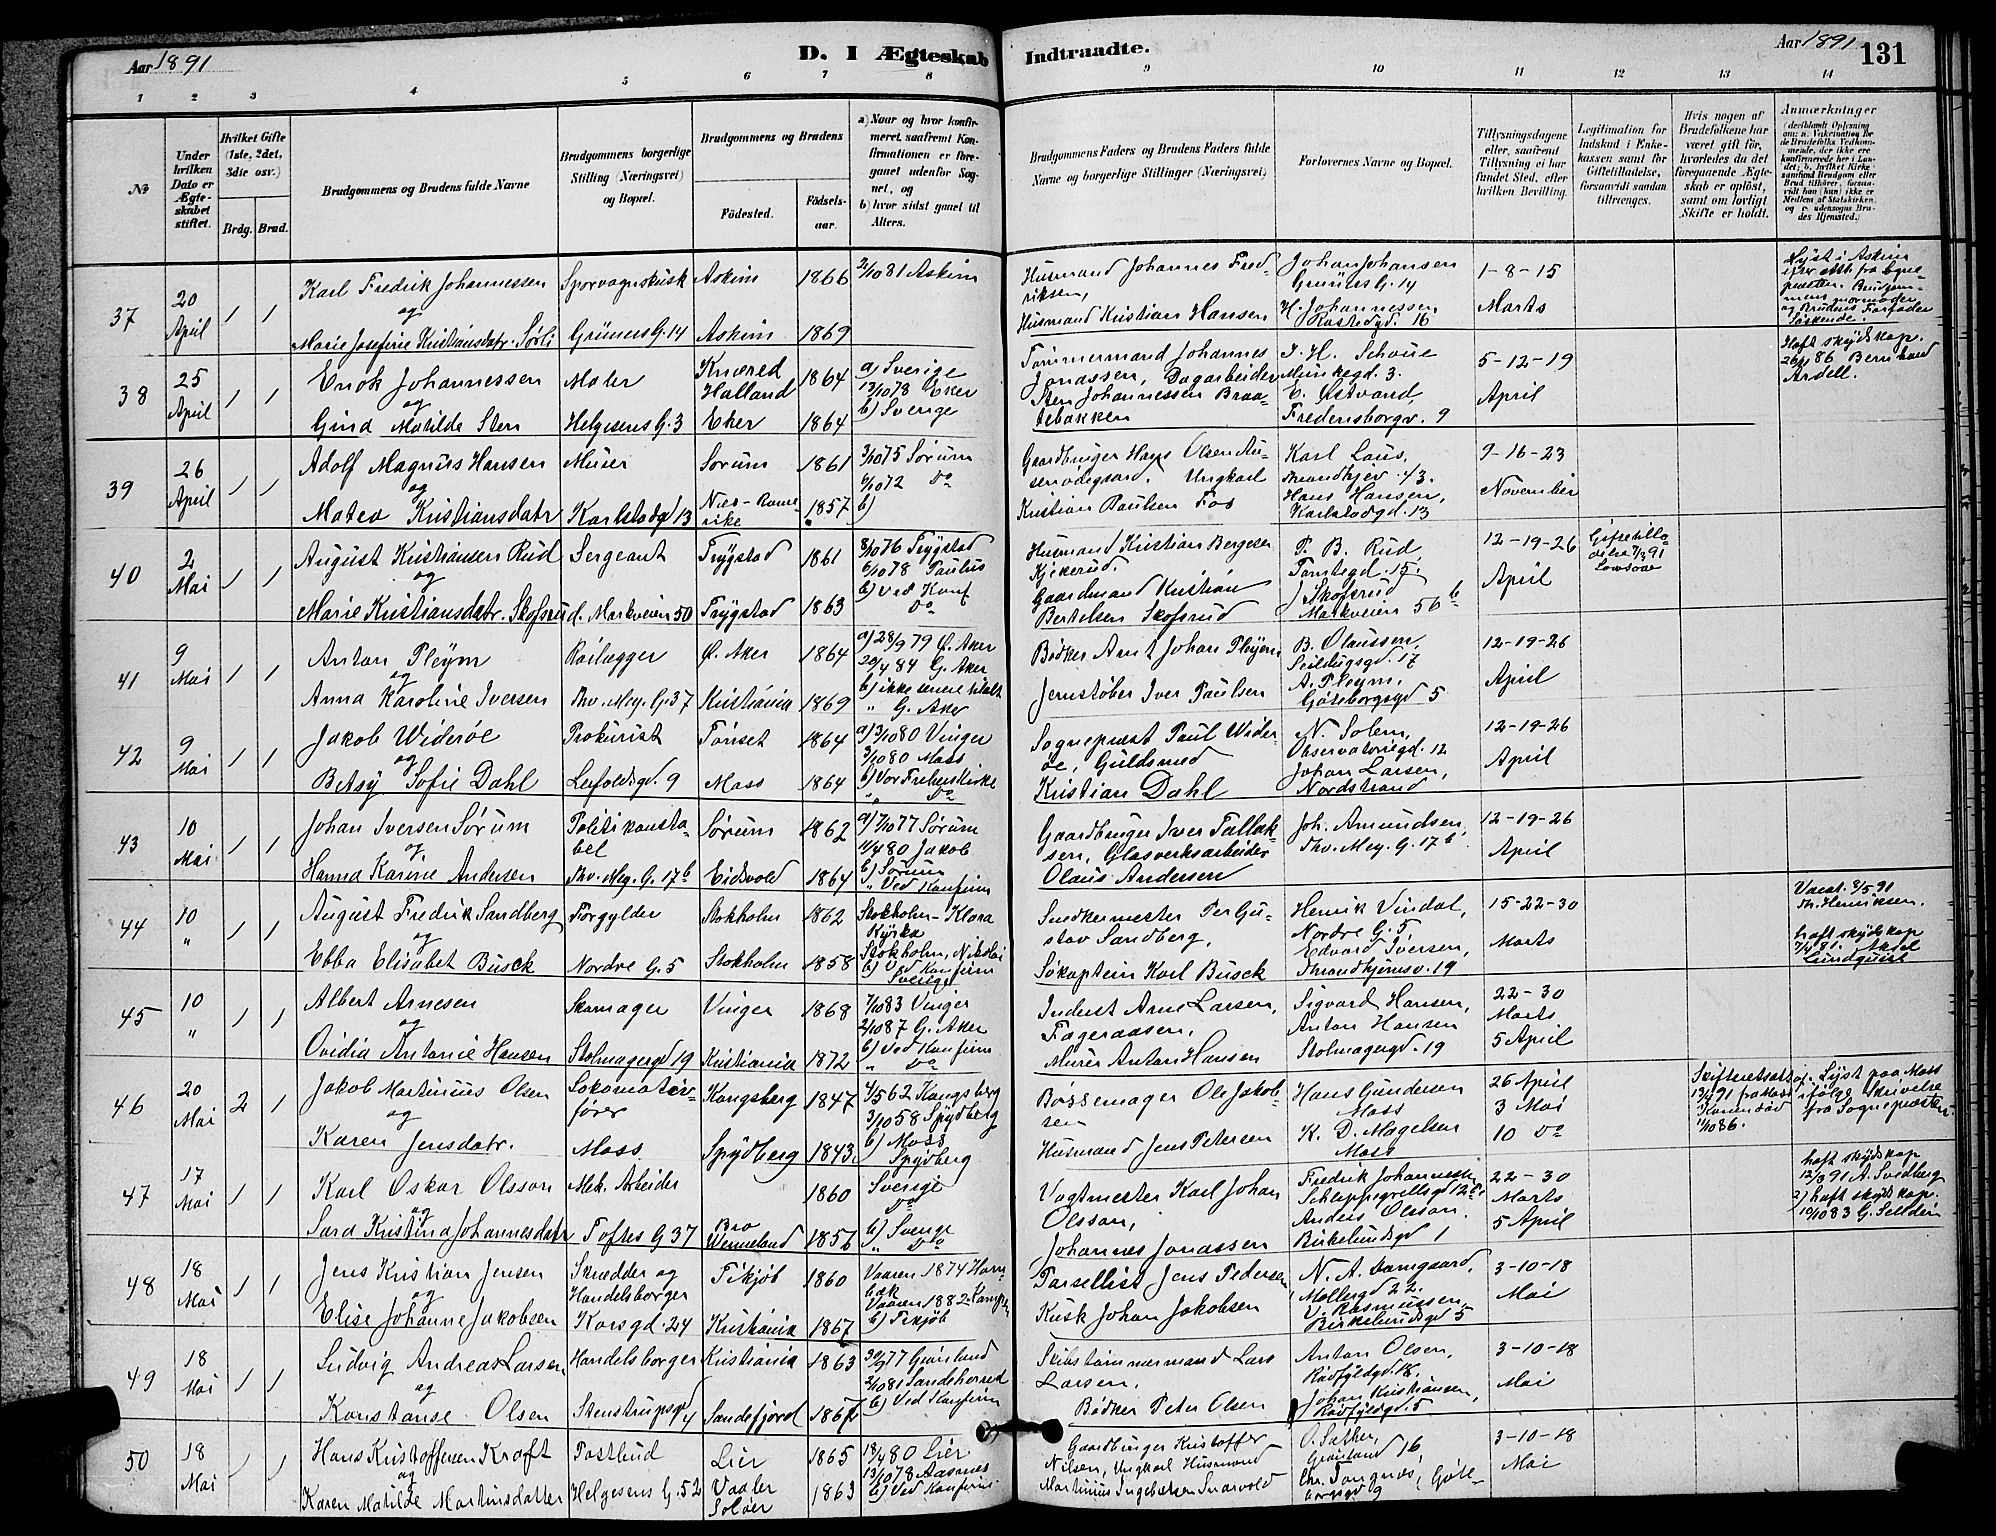 Aar 1891
D. I Ægteskab Indtraadte.
Aar 1891
131
1 2 3 4 5 6 7 8 9 10 11 12 13 14
№
Under hvilken Dato er Ægteskabet stiftet.
Hvilket Gifte (1ste, 2det, 3die osv.)
Brdg. Brud.
Brudgommens og Brudens fulde Navne
Brudgommens borgerlige Stilling (Næringsvei) og Bopæl.
Brudgommens og Brudens
Födested.
Födselsaar.
a) Naar og hvor konfirmeret, saafremt Konfirmationen er foregaaet udenfor Sognet, og
b) hvor sidst gaaet til Alters.
Brudgommens Faders og Brudens Faders fulde Navne og borgerlige Stillinger (Næringsvei)
Forlovernes Navne og Bopæl.
Tillysningsdagene eller, saafremt Tillysning ei har fundet Sted, efter hvilken Bevilling.
Legitimation for Indskud i Enkekassen samt for Giftetilladelse, forsaavidt saadan tiltrænges.
Hvis nogen af Brudefolkene har været gift før, hvorledes da det foregaaende Ægteskab er opløst, samt om lovligt Skifte er holdt.
Anmærkninger
37
20 April
1 1
Karl Fredrik Johannessen
og
Marie Josefine Kristiansdatr. Sørli
Sporvognskusk
Grünersg. 14
Askim 1866
Askim 1869
2/10 81 Askim
Husmand Johannes Fredriksen,
Husmand Kristian Hansen
Johan Johansen
Grünersg. 14
H. Johannessen
16
1-8-15
Marts
Lyst i Askim
38
25 April
1 1
Enok Johannessen
og
Gina Matilde Sten
Maler
Helgesens G. 3
Knæred Halland 1864
Eker 1864
a) Sverige
13/10 78 Eker
b) Sverige
Tømmermand Johannes
Jonassen, Dagarbeider
Sten Johannessen Braatebakken
J. H. Schoue
Munkegd. 3.
E. Østvand,
Fredensborgv. 9
5-12-19
April
Haft skydskap.
86 Bernhard
Ardell.
39
26 April
1 1
Adolf Magnus Hansen
og
Matea Kristiansdatr
Murer
Karlstadgd 13
Sørum 1861
Næs-Romerike 1857
3/10 75 Sørum
6/10 72 Do
b)
Gaardbruger Hans Olsen
Ungkarl
Kristian Paulsen Fos
Karl Laus,
43.
Hans Hansen,
Karlstadgd. 13
9-16-23
November
40
2 Mai
1 1
August Kristiansen Rud
og
Marie Kristiansdatr. Skofsrud.
Sergeant
Markveien 50
Trygstad 1861
Trygstad 1863
8/10 76 Trygstad
6/10 78 Paulus
b) Ved Konf
Do
Husmand Kristian Bergesen
Kjekerud.
Gaardmand Kristian
Bertelsen Skofsrud
P. B. Rud,
Tomtegd. 15.
J Skofsrud
Markveien 56 b
12-19-26
April
Giftetilladelse 7/3 91
41
9 Mai
1 1
Anton Pleym
og
Anna Karoline Iversen
Rørlægger
Thv. Mey. G. 37
Ø. Aker 1864
Kristiania 1869
a) 28/9 79 Ø. Aker
20/4 84 G. Aker
G. Aker
Bødker Arnt Johan Pleym
Jernstøber Iver Paulsen
B. Olaussen,
Seildugsgd. 17
A. Pleym,
Gøteborgsgd 5
12-19-26
April
42
9 Mai
1 1
Jakob Widerøe
og
Betsy Sofie Dahl
Prokurist
Leifoldsgd. 9
Tønset 1864
Moss 1864
a) 3/10 80 Vinger
3/10 80 Moss
b) Vor Frelsers Kirke
" Do
Sogneprest Paul Widerøe, Guldsmed
Kristian Dahl
N. Solem,
Observatoriegd. 12
Johan Larsen,
Nordstrand
12-19-26
April
43
10 Mai
1 1
Johan Iversen Sørum
og
Hanna Karine Andersen
Politikonstabel
Thv. Mey. G. 17 b
Sørum 1862
Eidsvold 1864
a) 7/10 77 Sørum
11/4 80 Jakob
b) Sørum
" Ved Konfirm
Gaardbruger Iver Tollaksen, Glasverksarbeider
Olaus Andersen
Joh. Amundsen,
Thv. Mey. G. 17 b
12-19-26
April
44
10 "
1 1
August Fredrik Sandberg
og
Ebba Elisabet Busck
Forgylder
Nordre G. 5
Stokholm 1862
Stokholm 1858
Stokholm-Klara
Kyrka
Stokholm, Nikolai
b) Ved Konfirm
Sverige
Snedkermester Per Gustav Sandberg,
Søkaptein Karl Busck
Henrik Vindal,
Nordre G. 5
Edvard Iversen,
Throndhjemsv. 19
15-22-30
Marts
8/5 91
Th. Henriksen.
haft skydskap
86. Aksel
Lindquist
45
10 "
1 1
Albert Arnesen
og
Ovidia Antonie Hansen
Skomager
Stolmagergd 19
Vinger 1868
Kristiania 1872
7/10 83 Vinger
2/10 87 G. Aker
b) Ved Konfirm.
" Do
Inderst Arne Larsen,
Fageraasen,
Murer Anton Hansen
Sigvard Hansen,
Anton Hansen
Stolmagergd. 19
22-30
Marts
5 April
46
20 Mai
2 1
Jakob Martinius Olsen
og
Karen Jensdatr.
Lokomotivfører
Moss.
Kongsberg 1847
Spydberg 1843.
4/5 62 Kongsberg
3/10 58 Spydberg
b) Moss
Spydberg
Bøssemager Ole Jakobsen
Husmand Jens Petersen
Hans Gundersen
Moss
K. D. Mogelsen
Moss
26 April
3 Mai
10 Do
Skifteretsatt.
91 fra Moss
86.
Lyst paa Moss
ifølge Skrivelse
fra Sognepresten
47
17 Mai
1 1
Karl Oskar Olsson
og
Sara Kristina Johannesdatr
Mek. Arbeider
Toftes G 37
1860
Bro Wermeland 1856
Sverige
Do
b) Sverige
" Do
Vagtmester Karl Johan
Olsson,
Johannes Jonassen
Fredrik Johannesen
Schleppegrellsgd 12
Anders Olsson.
Birkelundsgd 1
22-30
Marts
5 April
haft skydskap
12/3 91 A. Svedberg
2) haft skydskap.
10/10 83 G. Selldén
48
18 Mai
1 1
Jens Kristian Jensen
og
Elise Johanne Jakobsen
Skrædder og
Handelsborger
Korsgd. 24
Tikjøb 1860
Kristiania 1867
Vaaren 1874 Hornbæk
Vaaren 1882 Kampen
b) Tikjøb
Parsellist Jens Pedersen
Kusk Johan Jakobsen
N. A. Damgaard,
Møllergd 22.
V. Rasmussen,
Birkelundsgd 5
3-10-18
Mai
49
18 Mai
1 1
Ludvig Andreas Larsen
og
Konstanse Olsen
Handelsborger
Stenstrupsgd 4
Kristiania 1863
Sandefjord 1867
30/9 77 Grønland
2/10 81 Sandeherred
b) Ved Konfirm
Skibstømmermand Lars
Larsen,
Bødker Peter Olsen
Anton Olsen,
Rødfyldgd. 18,
Johan Kristiansen,
Rødfyldgd. 5
3-10-18
Mai
50
18 Mai
1 1
Hans Kristoffersen Kroft
og
Karen Matilde Martinsdatter
Postbud
Helgesens G. 52
Lier 1865
Vaaler Soløer 1863
18/4 80 Lier
13/10 78 Aasnes
b) Ved Konfirm.
Gaardbruger Kristoffer
Nilsen, Ungkarl Husmand
Martinius Ingebretsen Snarvold
O. Sather,
Grønland 16
Chr. Tangnæs, Gøteborgsgd 9
3-10-18
Mai